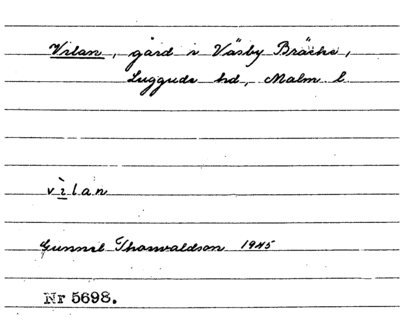 Vilan, gård i Väsby Bräcke,
Luggude hd, Malm l
vìlan
Gunnel Thorwaldson 1945
Nr 5698.